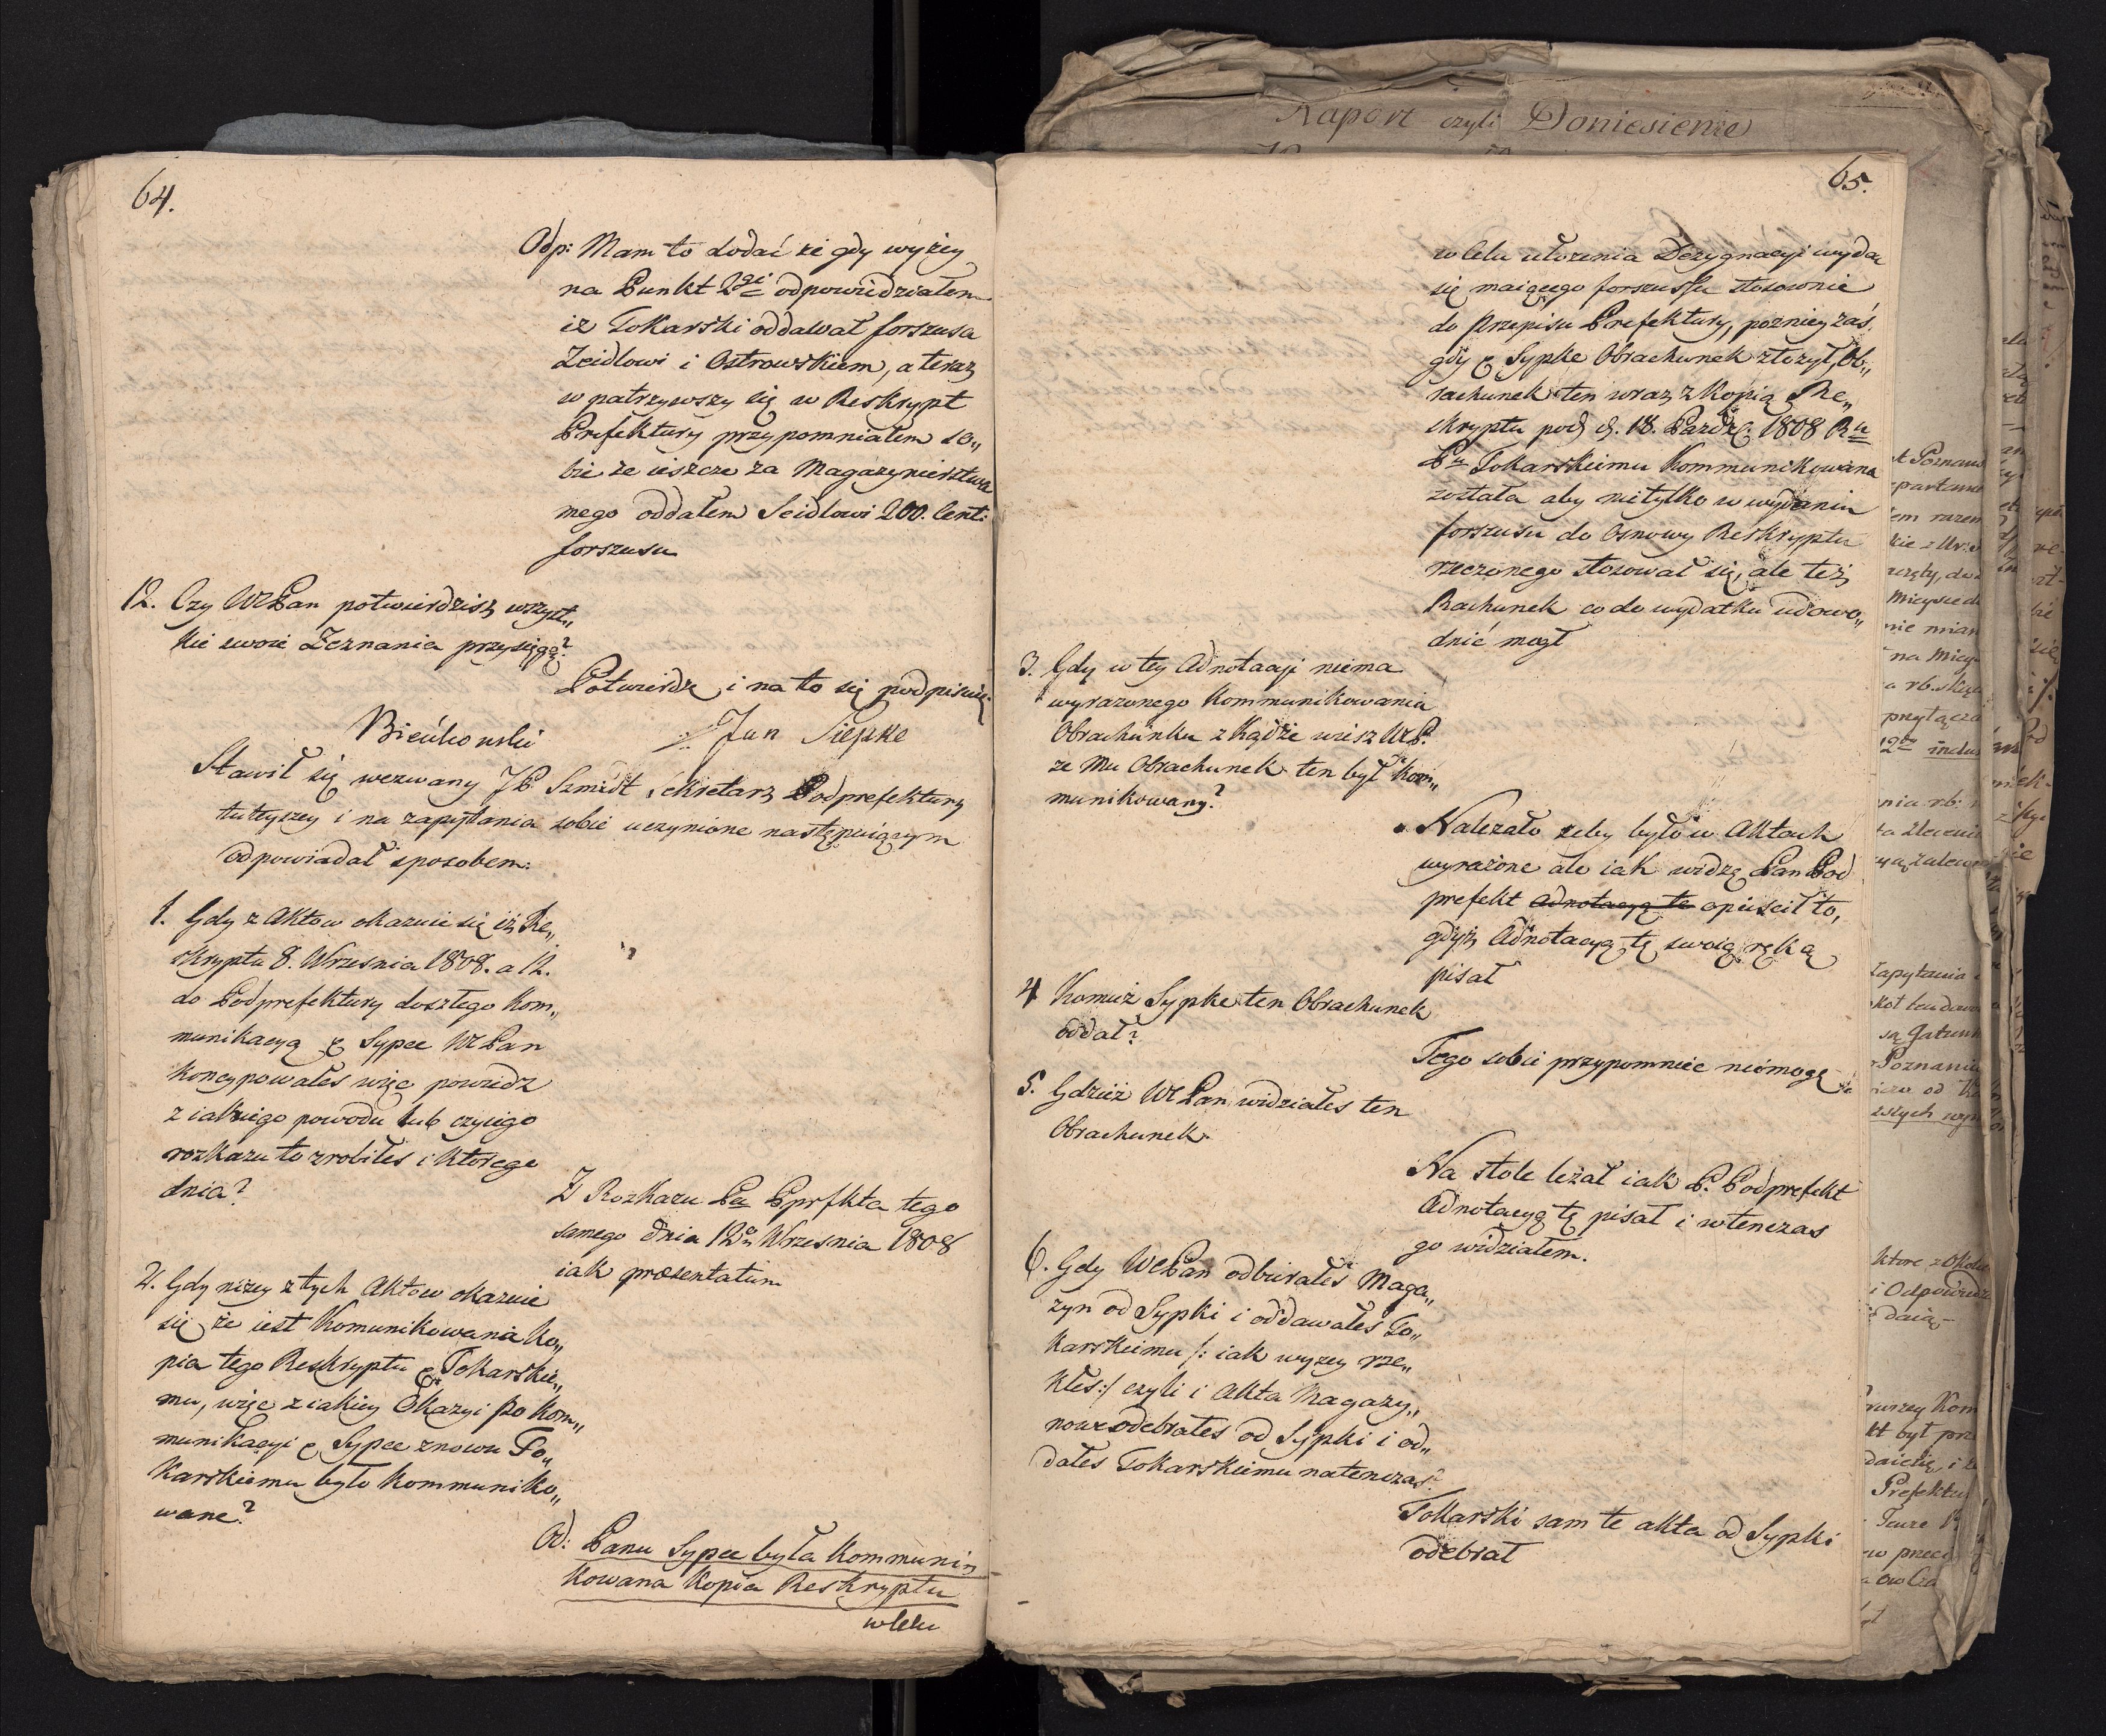 64.
Odp: Mam to dodać że gdy wyżey
na Punkt 2gi odpowiedziałem
iż Tokarski oddawał forszusa
Zeidlowi i Ostrowskiem, a teraz
wpatrzywszy się w Reskrypt
Prefektury przypomniałem so„
bie że ieszcze za Magazynierstwa
mego oddałem Seidlowi 200. Cent:
forszusu
12. Czy WPan potwierdzisz wszyst„
kie swoie Zeznania przysięgą?
Potwierdzę i na to się podpisuię.
Bieńkowski
Jan Siepke
Stawił się wezwany JP Szmidt Sekretarz Podprefektury
tuteyszey i na zapytania sobie uczynione następuiącym
odpowiadał sposobem:
1. Gdy z Aktow okazuie się iż Re„
skryptu 8. Wrzesnia 1808. a 12.
do Podprefektury doszłego Kom„
munikacyą Sypce WPan
koncypowałes więc powiedz
z iakiego powodu lub czyiego
rozkazu to zrobiłes i którego
dnia?
Z Rozkazu Pa Pprfkta tego
samego dnia 12. Wrzesnia 1808
iak præsentatum
2. Gdy niżey z tych Aktow okazuie
się że iest Komunikowana Ko„
pia tego Reskryptu Tokarskie„
mu, więc z iakiey Okazyi po Kom„
munikacyi Sypce znowu To„
karskiemu było Kommuniko„
wane?
Od: Panu Sypce była Kommuni„
kowana Kopia Reskryptu
w Celu
65.
w Celu ułożenia Dezygnacyi wydać
się maiącego forszussu stosownie
do Przepisu Prefektury, pozniey zaś
gdy Sypke Obrachunek złożył, Ob„
rachunek ten wraz z Kopią Re„
skryptu pod d. 18. Pazdź. 1808 Ru
Pu Tokarskiemu Kommunikowana
została aby nietylko w wydaniu
forszusu do Osnowy Reskryptu
rzeczonego stosował się, ale też
Rachunek co do wydatku udowo„
dnić mogł
3. Gdy w tey Adnotacyi niema
wyrażonego Kommunikowania
Obrachunku zkądże wiesz WP.
że Mu Obrachunek ten był Kom„
munikowany?
Należało żeby było w Aktach
wyrażone ale iak widzę Pan Pod
prefekt Adnotacyą tę opuscił to,
gdyż Adnotacyą tę swoią ręką
pisał
4 Komuż Sypke ten Obrachunek
oddał?
Tego sobie przypomniec niemogę
5. Gdzież WPan widziałes ten
Obrachunek.
Na stole leżał iak P. Podprefekt
Adnotacyą tę pisał i wtenczas
go widziałem.
6. Gdy WPan odbierałes Maga„
zyn od Sypki i oddawałes To„
karskiemu /: iak wyżey rze„
kłes :/ czyli i Akta Magazy„
nowe odebrałes od Sypki i od„
dałes Tokarskiemu natenczas?
Tokarski sam te akta od Sypki
odebrał
Raport czyli Doniesienie